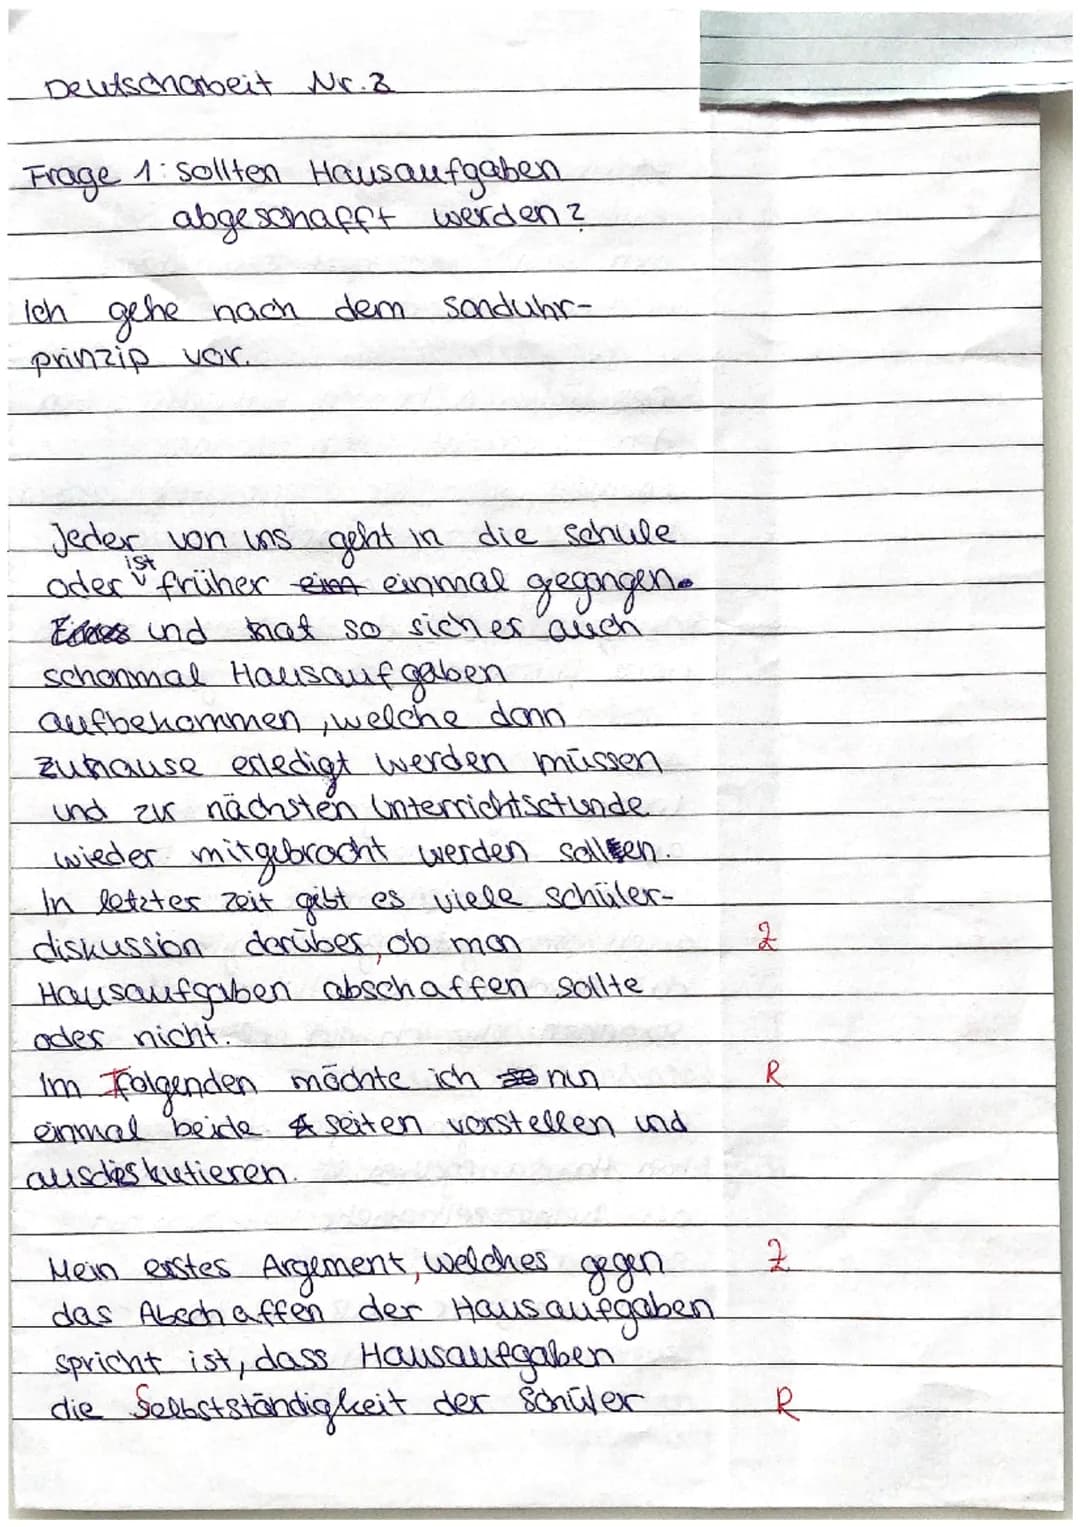 Deutscharbeit Nr.3
Frage 1: sollten Hausaufgaben
abgeschafft werden?
Ich gehe nach dem Sanduhr-
prinzip vor.
Jeder von uns geht in die schule
oder ist früher einmal gegangen.
und hat so sicher auch
schonmal Hausaufgaben
aufbekommen, welche dann
zuhause erledigt werden müssen
und zur nächsten Unterrichtsstunde
wieder mitgebracht werden sollen.
In letzter Zeit gibt es viele schüler-
diskussion darüber, ob man Z
Hausaufgaben abschaffen sollte
oder nicht.
Im Folgenden möchte ich nun R
einmal beide seiten vorstellen und
ausdiskutieren.
Mein erstes Argement, welches gegen Z
das Abschaffen der Hausaufgaben
spricht ist, dass Hausaufgaben
die Selbstständigkeit der Schüler R